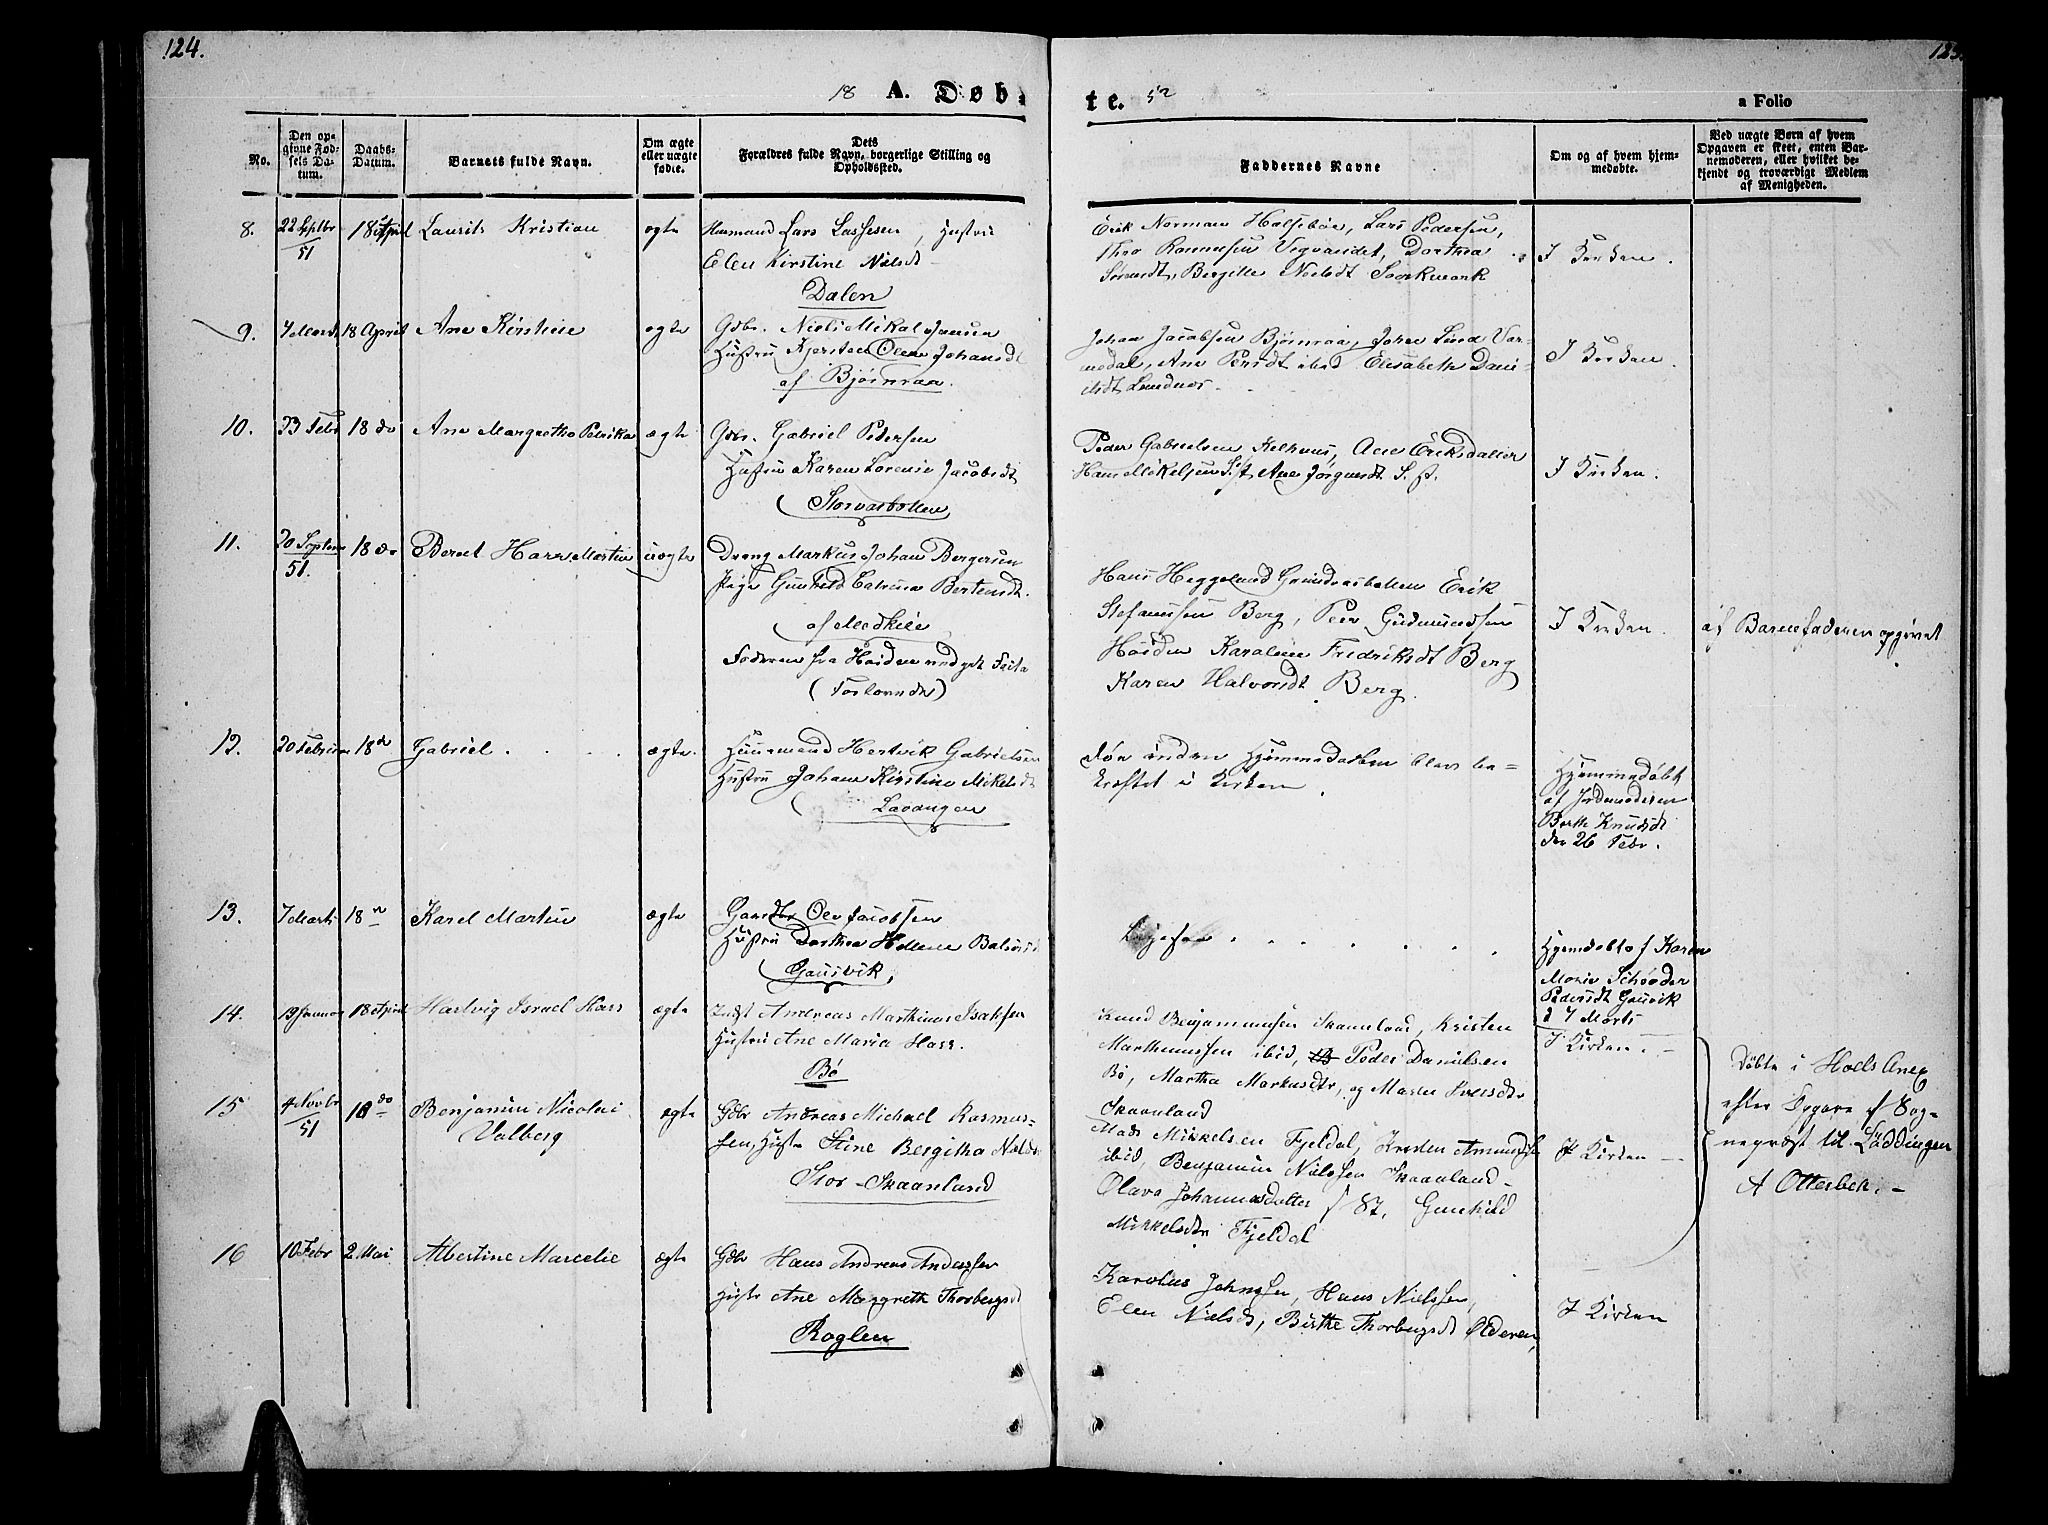 124.
18 A. Døb-
te. 52
a Folio
No.
Den op-
givne Fød-
sels Da-
tum.
Daabs-
Datum.
Barnets fulde Navn.
Om ægte
eller uægte
fødte.
Dets
Forældres fulde Navn, borgerlige Stilling og
Opholdssted.
Faddernes Navne
Om og af hvem hjem-
medøbte.
Ved uægte Børn af hvem
Opgaven er skeet, enten Bar-
nemoderen, eller hvilket be-
kjendt og troværdigt Medlem
af Menigheden.
8.
22 Septbr
51
18 April
Laurits Kristian
ægte
Huusmand Lars Lassesen, Hustru
Elen Kirstine Nielsdt
Dalen
Erik Norman Halsebøe, Lars Pedersen,
Thro Rasmusen Vigvandet, Dorthea
Bergitte Nielsdt
I Kirken.
9.
7 Marts
18 April
Ane Kirstine
ægte
Gdbr. Niels Mikal Jensen
Hustru Kjersten Olene Johansdt
af Bjørnraa.
Johan Jacobsen Bjørnraa, Johan Lind Var-
medal, Ane Persdt ibid Elisabeth Dani-
elsdt Landnes.
I Kirken.
10.
23 Febr
18 do
Ane Margrethe Petrika
ægte
Gdbr. Gabriel Pedersen
Hustru Karen Lorense Jacobsdt
Storvasbotten
Peder Gabrielsen Kelhuus, Ane Eriksdatter
Hans Mikelsen S. st. Ane Jørgensdt S. st.
I Kirken.
11.
20 Septem
51.
18 do
Berent Hans Martin
uægte
Dreng Markus Johan Bergersen
Pige Gunhild Catrina Bertensdt.
af Medkile
Faderen fra Høiden
(Forlovede)
Hans Heggelund Grundvasbotten Erik
Stefanussen Berg, Peer Gudmundsen
Høiden Karoline Fredriksdt Berg
Karen Halvorsdt Berg.
I Kirken.
af Barnefaderen opgivet
12.
20 Februar
18 do
Gabriel
ægte.
Huusmand Hertvik Gabrielsen
Hustru Johane Kirstine Mikelsdt
Lavangen
Før inden Hjemmedaaben blev be-
kræftet i Kirken.
Hjemmedøbt
af Jordmoderen
Berthe Knudsdt
den 26 Febr.
13.
7 Marts
18
Karel Martin
ægte
Gaardbr Ole Jacobsen
Hustru Dorthea Hellene
Gausvik,
Hjemdøbt af Karen
Marie Schrøder
Pedersdt Gausvik
d 7 Marts
14.
19 Januar
18 April
Hartvig Israel Hass
ægte
Indst Andreas Marthinus Isaksen
Hustru Ane Maria Hass.
Bø
Knud Benjaminsen Skaanland, Kristen
Marthinussen ibid, Peder Danielsen
Bø, Martha Markusdtr, og Maren Iversdtr
Skaanland
I Kirken. —
Døbte i Hoels Anex
efter Opgave af Sog-
nepræst til Løddingen
A Otterbek. —
15
4 Novbr
51
18 do
Benjamin Nicolai
Valberg
ægte
Gdbr Andreas Michael Rasmus-
sen, Hustr Stine Bergitha Nielsdtr
Stor-Skaanland
Mads Mikkelsen Fjeldal, Kresten Amundsen
ibid, Benjamin Nielssen Skaanland —
Olava Johannesdatter s st, Gunhild
Mikkelsdtr Fjeldal
I Kirken —
16
10 Febr
2. Mai
Albertine Marcelie
ægte
Gdbr Hans Andreas Anderssen
Hustr Ane Margreth Thorbergsdt
Roglen
Karolus Johnssen, Hans Nielssen,
Elen Nielsdt, Birthe Thorbergsdt Olderen,
I Kirken